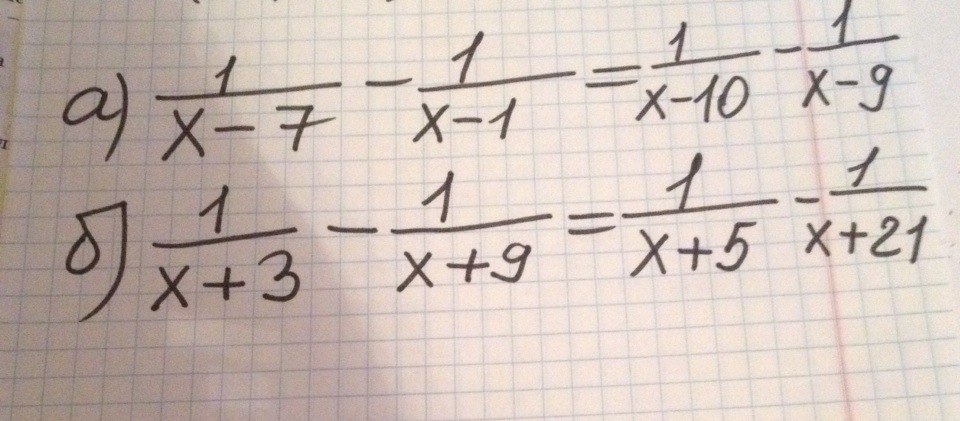 а) 1/(x-7) - 1/(x-1) = 1/(x-10) - 1/(x-9)
б) 1/(x+3) - 1/(x+9) = 1/(x+5) - 1/(x+21)